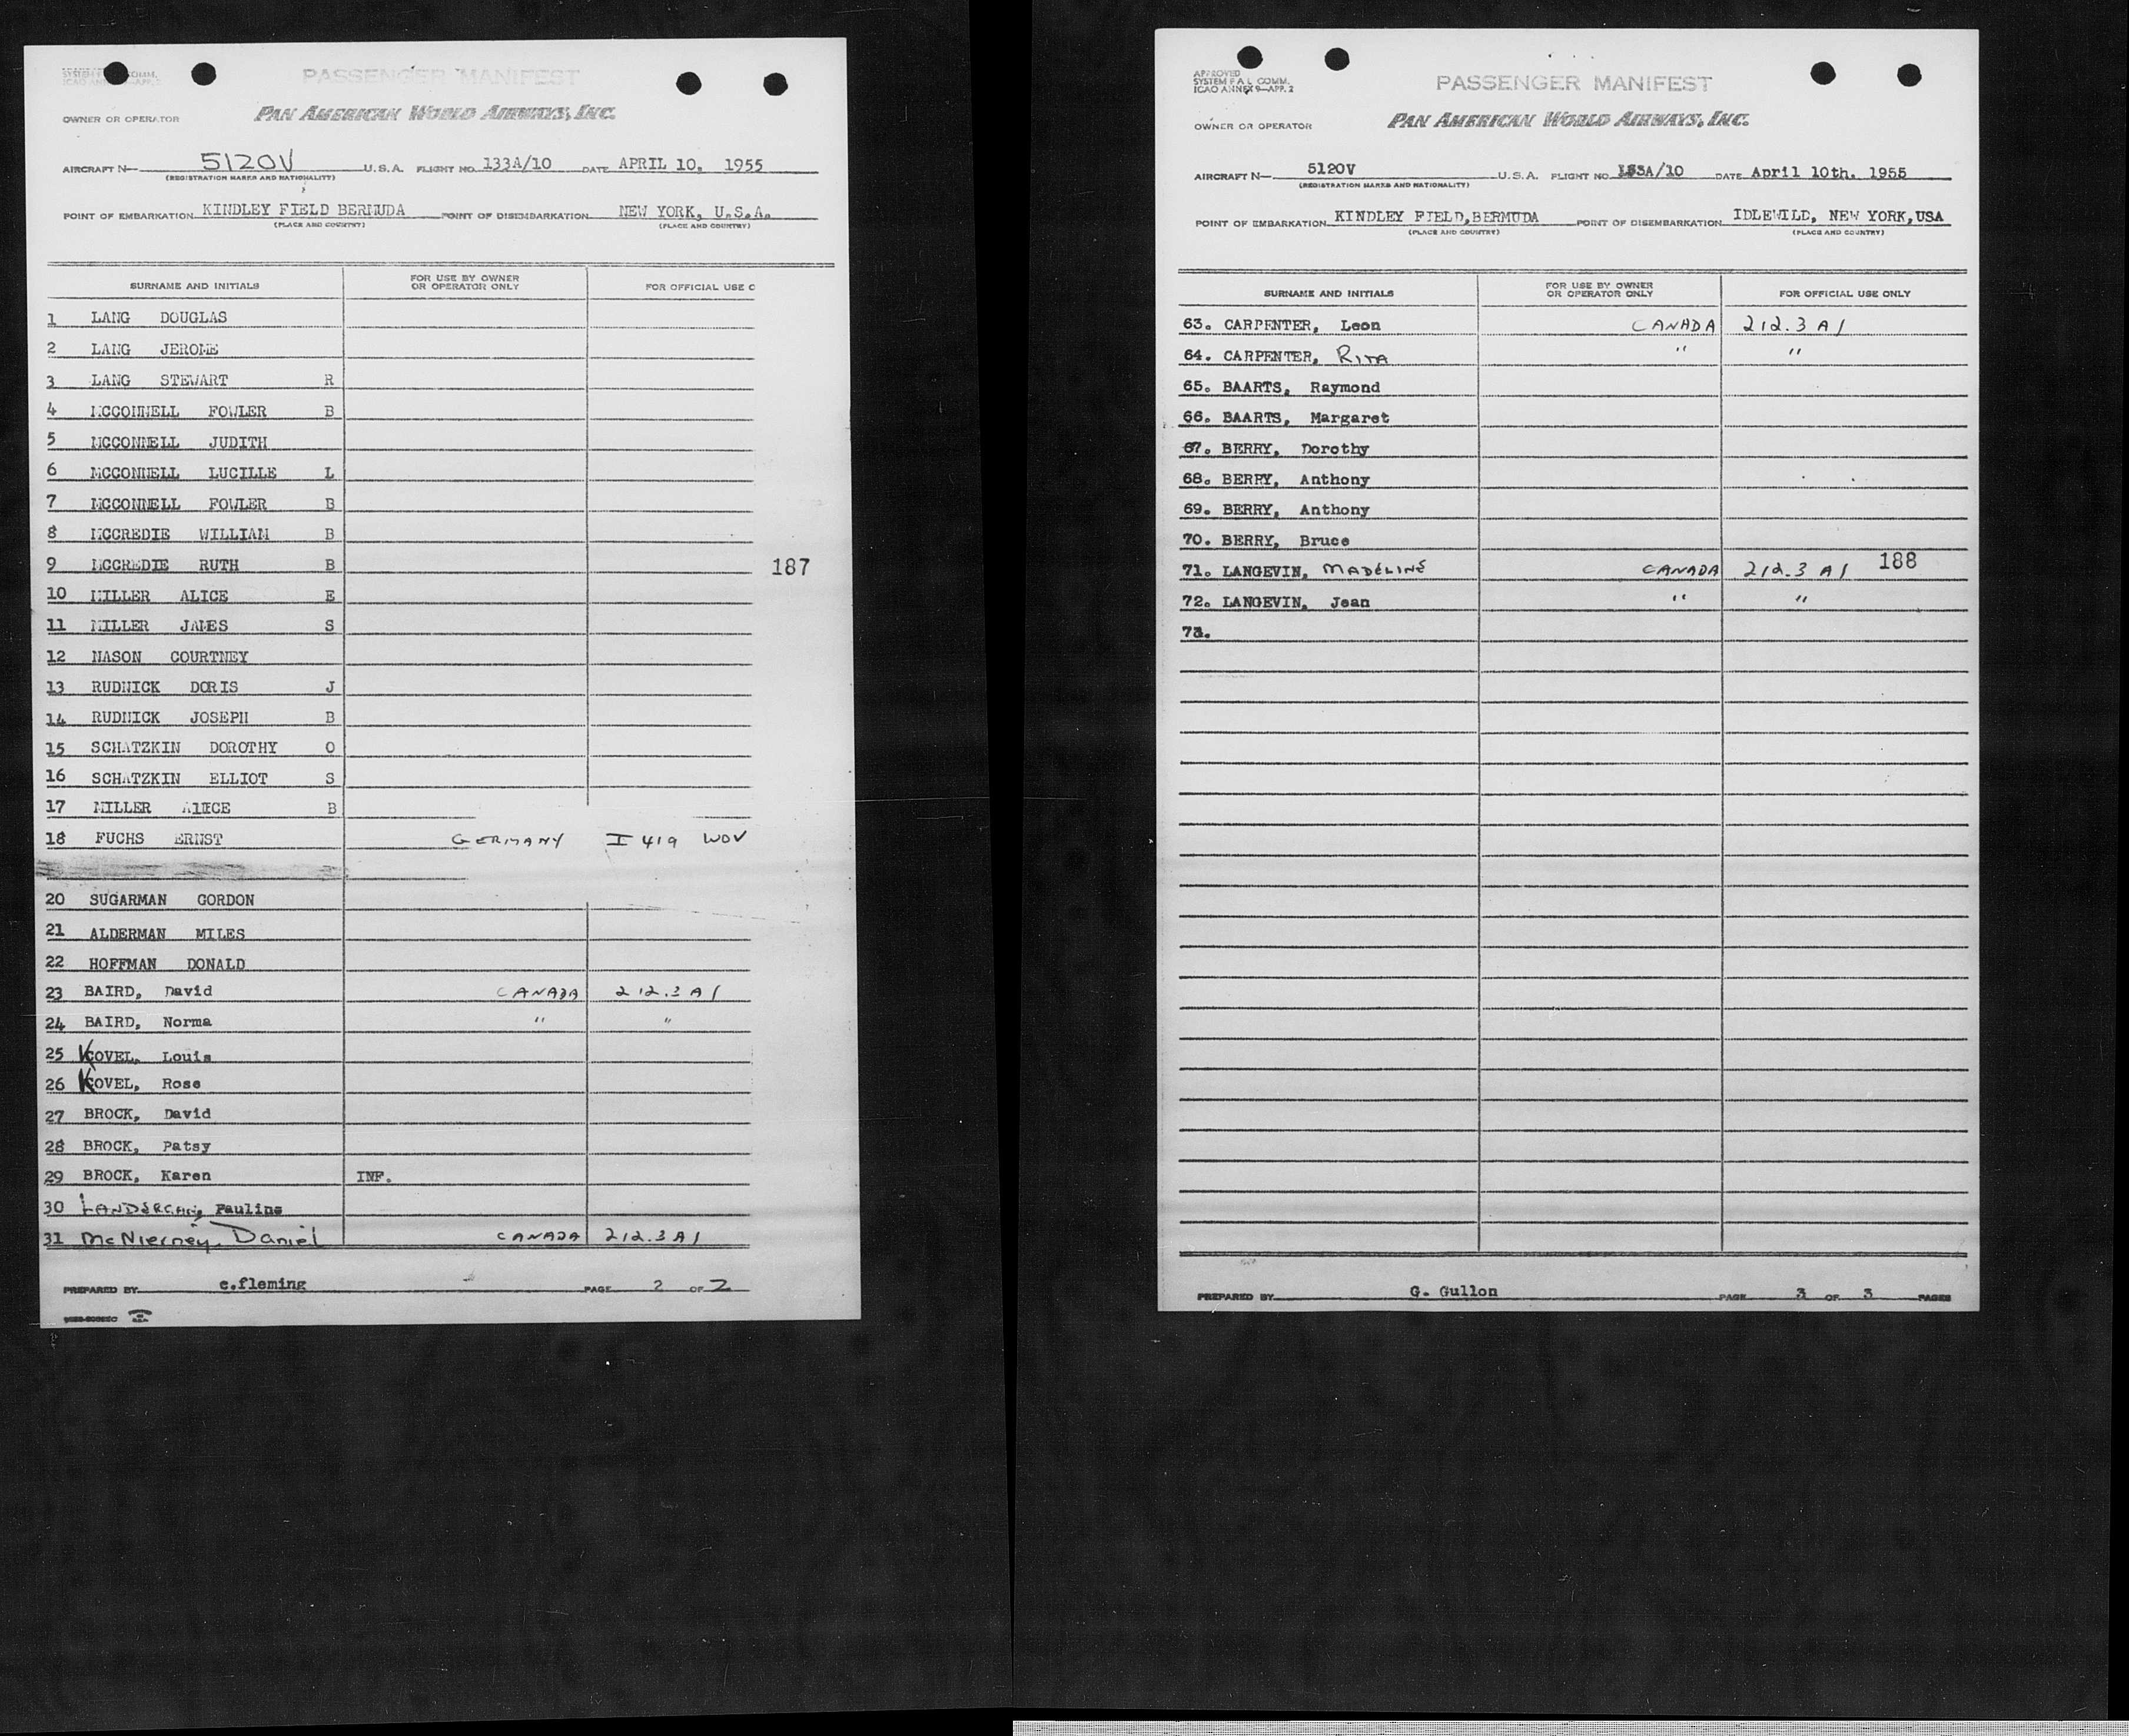 SYSTEM F COMM.
ICAO AN APP.
PASSENGER MANIFEST
PAN AMERICAN WORLD AIRWAYS, INC.
OWNER OR OPERATOR
AIRCRAFT N— 5120V U.S.A. FLIGHT NO. 133A/10 DATE APRIL 10, 1955
(REGISTRATION MARKS AND NATIONALITY)
POINT OF EMBARKATION KINDLEY FIELD BERMUDA POINT OF DISEMBARKATION NEW YORK, U.S.A.
(PLACE AND COUNTRY) (PLACE AND COUNTRY)
SURNAME AND INITIALS FOR USE BY OWNER OR OPERATOR ONLY FOR OFFICIAL USE C
1 LANG DOUGLAS
2 LANG JEROME
3 LANG STEWART R
4 MCCONNELL FOWLER B
5 MCCONNELL JUDITH
6 MCCONNELL LUCILLE L
7 MCCONNELL FOWLER B
8 MCCREDIE WILLIAM B
9 MCCREDIE RUTH B
187
10 MILLER ALICE E
11 MILLER JAMES S
12 NASON COURTNEY
13 RUDNICK DORIS J
14 RUDNICK JOSEPH B
15 SCHATZKIN DOROTHY O
16 SCHATZKIN ELLIOT S
17 MILLER ALICE B
18 FUCHS ERNST GERMANY I 419 WOV
20 SUGARMAN GORDON
21 ALDERMAN MILES
22 HOFFMAN DONALD
23 BAIRD, David CANADA 212.3 A1
24 BAIRD, Norma " "
25 KOVEL, Louis
26 KOVEL, Rose
27 BROCK, David
28 BROCK, Patsy
29 BROCK, Karen INF.
30 Pauline
31 McNierney, Daniel CANADA 212.3 A1
PREPARED BY c.fleming PAGE 2 OF 2
APPROVED
SYSTEM F A L COMM.
ICAO ANNEX 9—APP. 2
PASSENGER MANIFEST
PAN AMERICAN WORLD AIRWAYS, INC.
OWNER OR OPERATOR
AIRCRAFT N— 5120V U.S.A. FLIGHT NO. 133A/10 DATE April 10th. 1955
(REGISTRATION MARKS AND NATIONALITY)
POINT OF EMBARKATION KINDLEY FIELD, BERMUDA POINT OF DISEMBARKATION IDLEWILD, NEW YORK, USA
(PLACE AND COUNTRY) (PLACE AND COUNTRY)
SURNAME AND INITIALS FOR USE BY OWNER OR OPERATOR ONLY FOR OFFICIAL USE ONLY
63. CARPENTER, Leon CANADA 212.3 A1
64. CARPENTER, RITA " "
65. BAARTS, Raymond
66. BAARTS, Margaret
67. BERRY, Dorothy
68. BERRY, Anthony
69. BERRY, Anthony
70. BERRY, Bruce
71. LANGEVIN, MADELINE CANADA 212.3 A1 188
72. LANGEVIN, Jean " "
73.
PREPARED BY G. Gullon PAGE 3 OF 3 PAGES